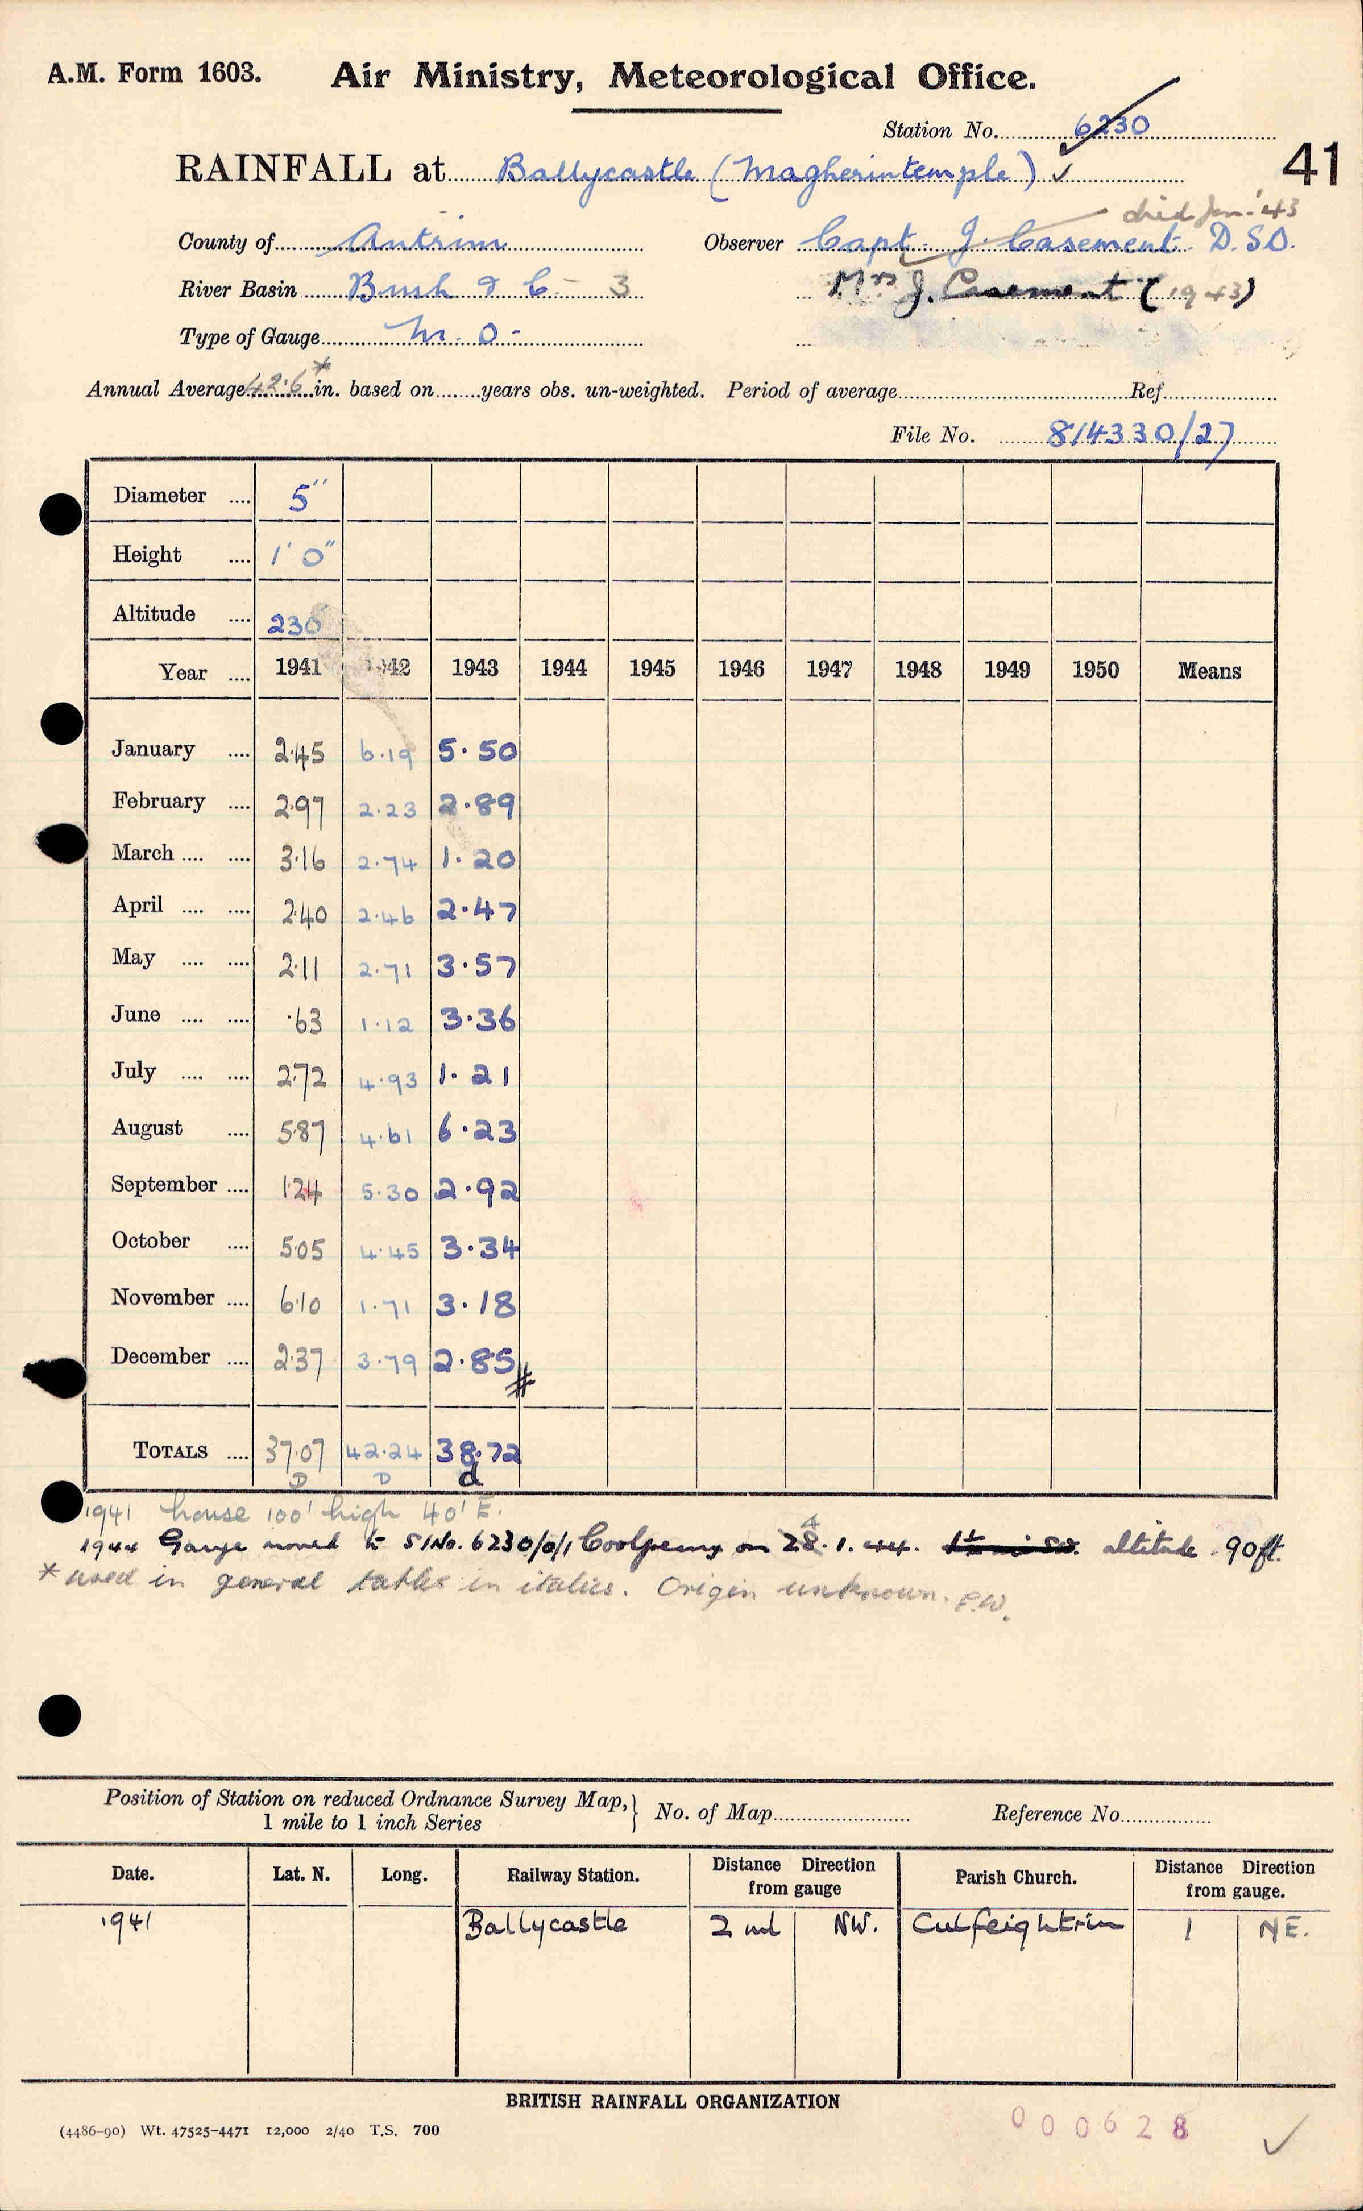 A.M. Form 1603. Air Ministry, Meteorological Office.
Station No. 6230
41
RAINFALL at Ballycastle (Magherintemple) ✓
died Jan. '43
County of Antrim Observer Capt. J. Casement D.S.O.
River Basin Bush & C– 3 Mrs J. Casement (1943)
Type of Gauge M.O–
Annual Average 42.6* in. based on years obs. un-weighted. Period of average Ref.
File No. 814330/27
Diameter 5"
Height 1' 0"
Altitude 230'
Year 1941 1942 1943 1944 1945 1946 1947 1948 1949 1950 Means
January 2.45 6.19 5.50
February 2.97 2.23 2.89
March 3.16 2.74 1.20
April 2.40 2.46 2.47
May 2.11 2.71 3.57
June .63 1.12 3.36
July 2.72 4.93 1.21
August 5.87 4.61 6.23
September 1.24 5.30 2.92
October 5.05 4.45 3.34
November 6.10 1.71 3.18
December 2.37 3.79 2.85 #
TOTALS 37.07 42.24 38.72
D D d
1941 house 100' high 40' E.
1944 Gauge moved to S/No. 6230/0/1 Coolpenny on 24.1.44. altitude 90ft.
* used in general tables in italics. Origin unknown. E.W.
Position of Station on reduced Ordnance Survey Map,} No. of Map Reference No.
1 mile to 1 inch Series
Date. Lat. N. Long. Railway Station. Distance Direction from gauge Parish Church. Distance Direction from gauge.
1941 Ballycastle 2 ml NW. Culfeightrin 1 NE.
BRITISH RAINFALL ORGANIZATION
(4486-90) Wt. 47525-4471 12,000 2/40 T.S. 700
000628 ✓